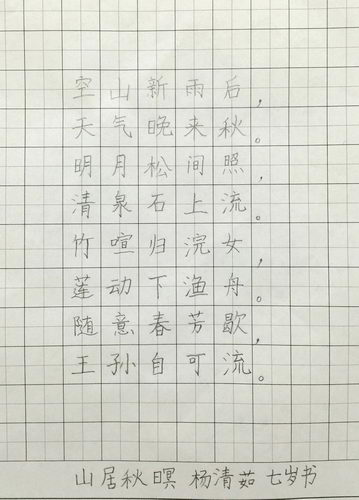 空山新雨后，
天气晚来秋。
明月松间照，
清泉石上流。
竹喧归浣女，
莲动下渔舟。
随意春芳歇，
王孙自可流。
山居秋暝 杨清茹 七岁书